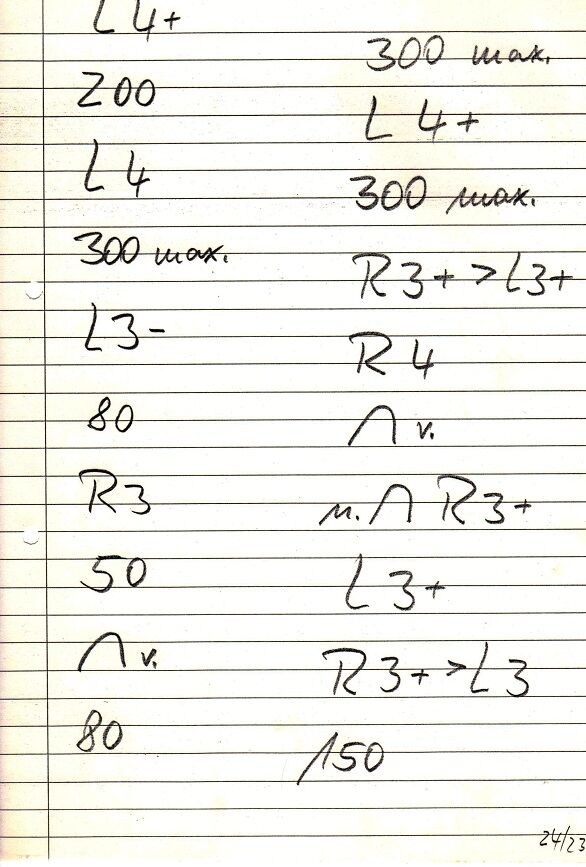 L 4+
200
L 4
300 max.
L3-
80
R3
50
⋂ v.
80
300 max.
L 4+
300 max.
R3+ > L3+
R 4
⋂ v.
n. ⋂ R3+
L 3+
R3+ > L3
150
24/23